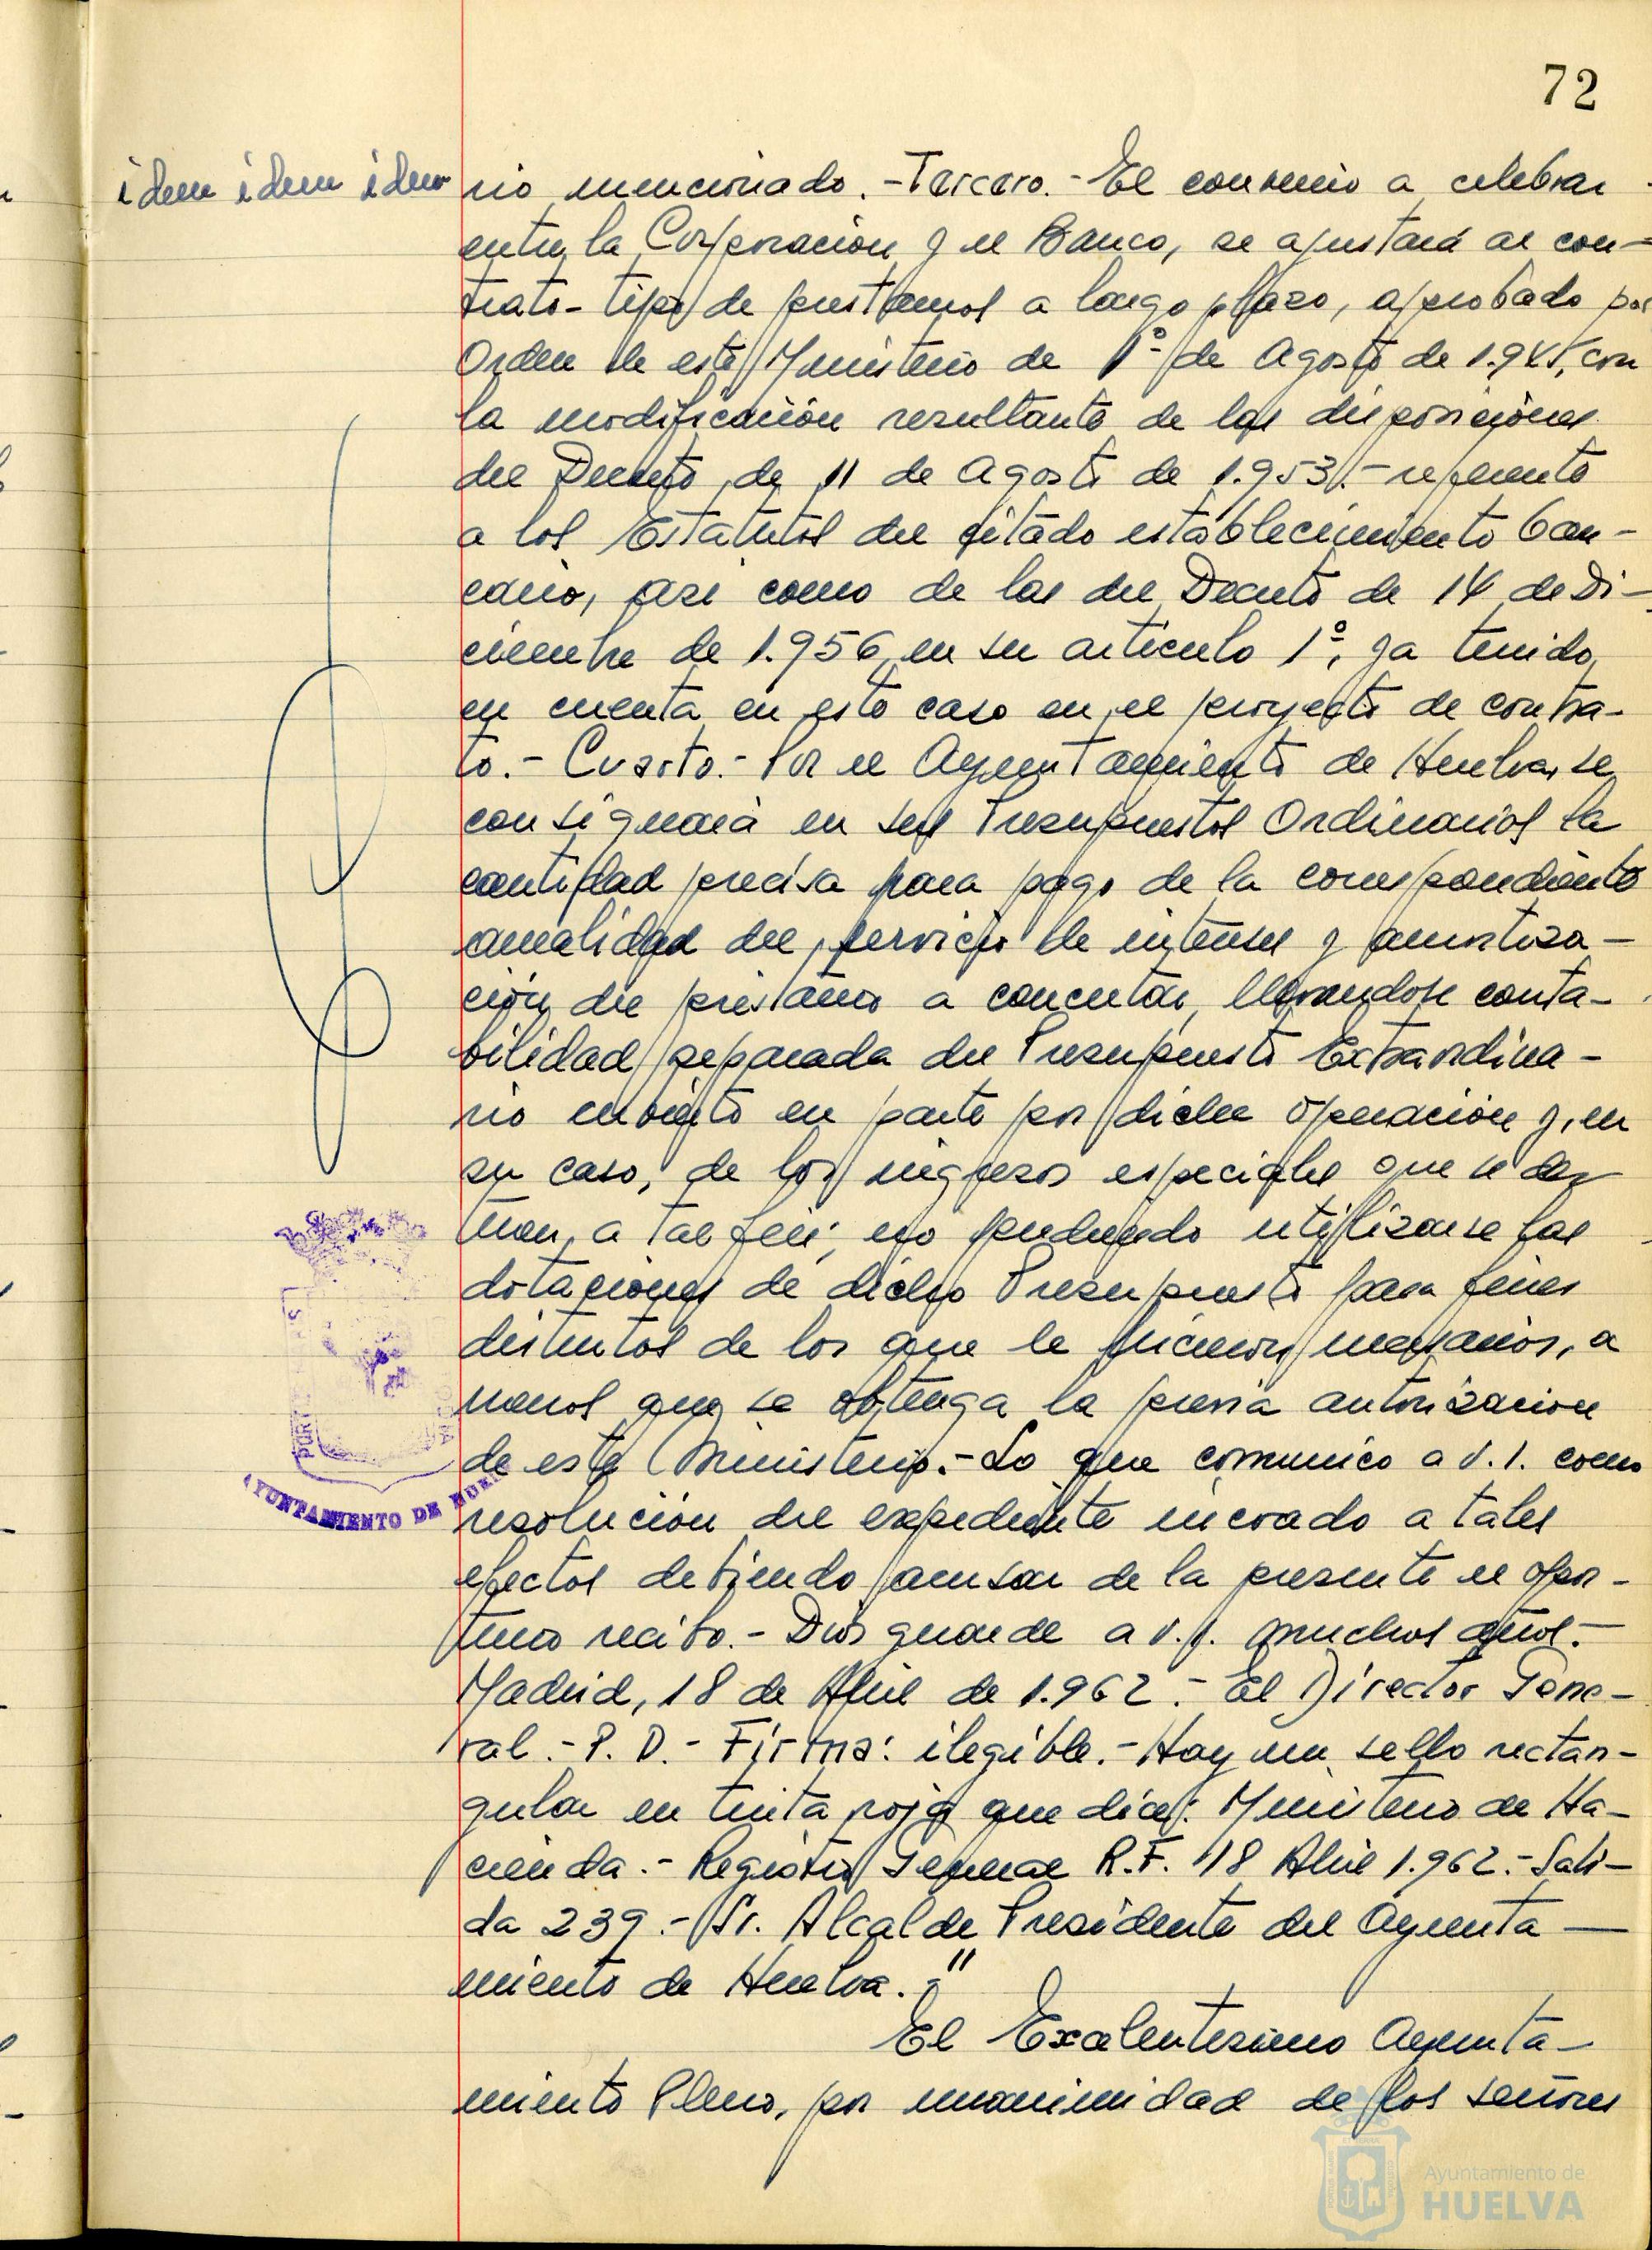 72
idem idem idem
rio mencionado.-Tercero.-El convenio a celebrar
entre la Corporación y el Banco, se ajustará al con-
trato-tipo de prestamos a largo plazo, aprobado por
Orden de este Ministerio de 1º de Agosto de con
la modificación resultante de las disposiciones
del Decreto de 11 de Agosto de 1.953.-referente
a los Estatutos del citado establecimiento ban-
cario, asi como de las del Decreto de 14 de Di-
ciembre de 1.956 en su articulo 1º, ya tenido
en cuenta en este caso en el proyecto de contra-
to.-Cuarto.-Por el Ayuntamiento de Huelva, se
consignará en sus Presupuestos Ordinarios la
cantidad precisa para pago de la correspondiente
anualidad del servicio de interses y amortiza-
ción del préstamo a concertar, llevandose conta-
bilidad separada del Presupuesto Extraordina-
rio cubierto en parte por dicha operación y, en
su caso, de los ingresos especiales que se des
tinen a tal fin; no pudiendo utilizarse las
dotaciones de dicho Presupuesto para fines
distintos de los que le hicieron necesarios, a
menos que se obtenga la previa autorización
de este Ministerio.-Lo que comunico a V.I. como
resolución del expediente incoado a tales
efectos debiendo acusar de la presente el opor-
tuno recibo.-Dios guarde a V.I. muchos años.-
Madrid, 18 de Abril de 1.962.-El Director Gene-
ral.-P.D.-Firma: ilegible.-Hay un sello rectan-
gular en tinta roja que dice: Ministerio de Ha-
cienda.-Registro General R.F. 18 Abril 1.962.-Sali-
da 239.-Sr. Alcalde Presidente del Ayunta-
miento de Huelva."
El Excelentisimo Ayunta-
miento Pleno, por unanimidad de los señores
AYUNTAMIENTO DE HUELVA
Ayuntamiento de
HUELVA